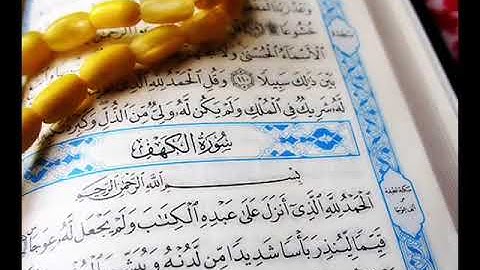 خُشُوعًا
الْأَسْمَاءُ الْحُسْنَىٰ وَلَا
بَيْنَ ذَٰلِكَ سَبِيلًا ١١٠ وَقُلِ الْحَمْدُ لِلَّهِ الَّذِي
لَّهُ شَرِيكٌ فِي الْمُلْكِ وَلَمْ يَكُن لَّهُ وَلِيٌّ مِّنَ الذُّلِّ وَكَبِّرْهُ
سُورَةُ الْكَهْفِ
بِسْمِ اللَّهِ الرَّحْمَٰنِ الرَّحِيمِ
الْحَمْدُ لِلَّهِ الَّذِي أَنزَلَ عَلَىٰ عَبْدِهِ الْكِتَابَ وَلَمْ يَجْعَل لَّهُ عِوَجًا
قَيِّمًا لِّيُنذِرَ بَأْسًا شَدِيدًا مِّن لَّدُنْهُ وَيُبَشِّرَ
سجدة